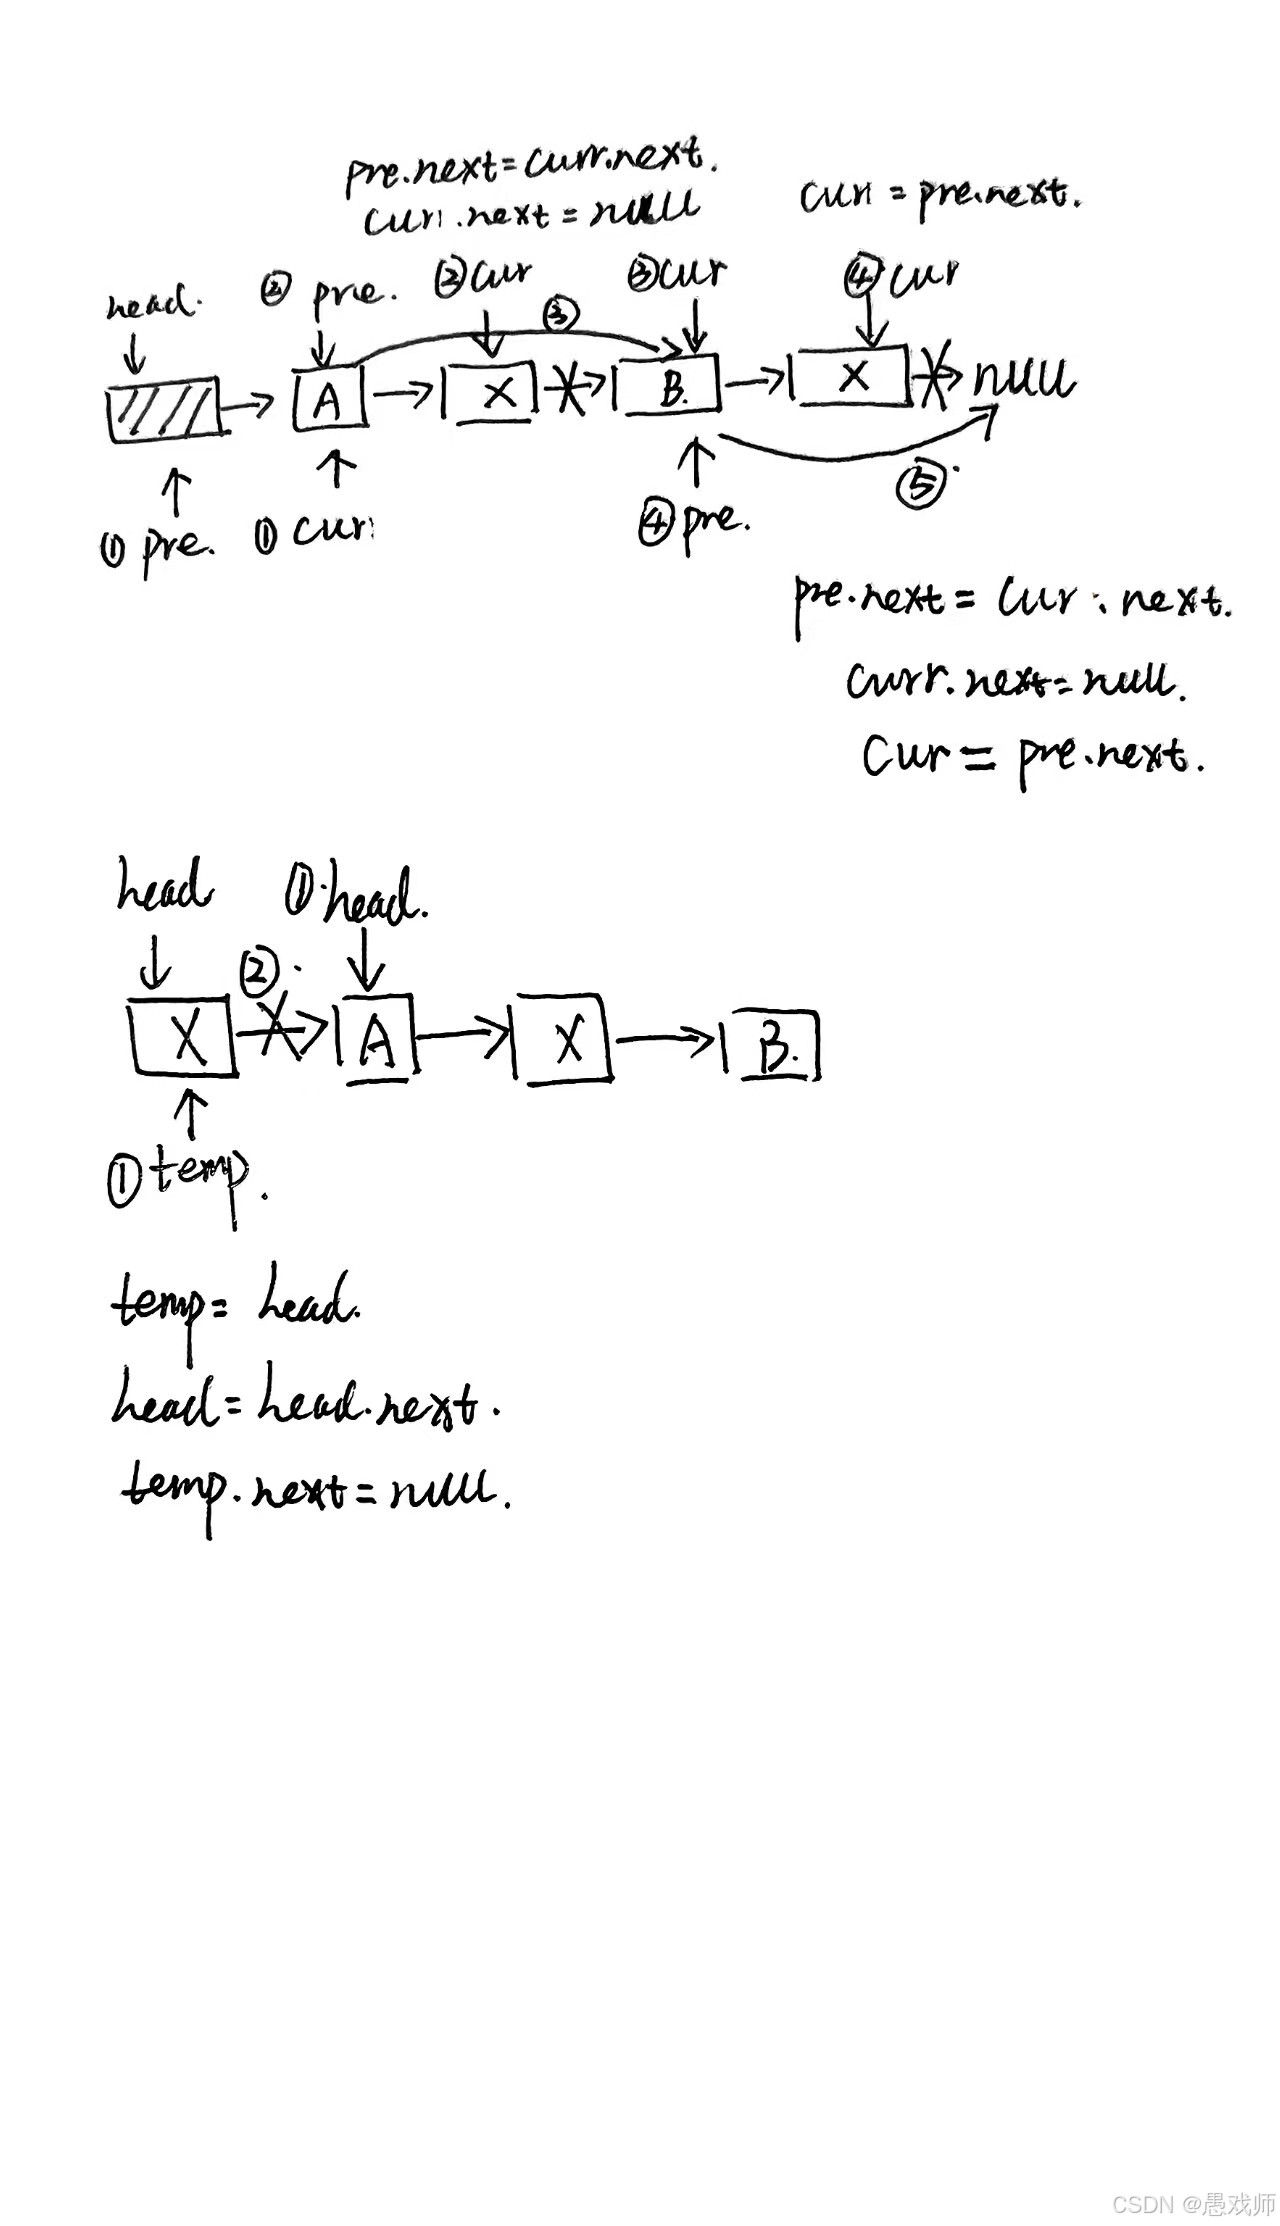 pre.next=curr.next.
curr.next=null
curr=pre.next.
head.
② pre.
②cur
③
③cur
④cur
A
X
B.
X
null
① pre.
① curr
④pre.
⑤
pre.next=cur.next.
curr.next=null.
cur=pre.next.
head
①.head.
②.
X
A
X
B.
①temp.
temp=head.
head=head.next.
temp.next=null.
CSDN @愚戏师